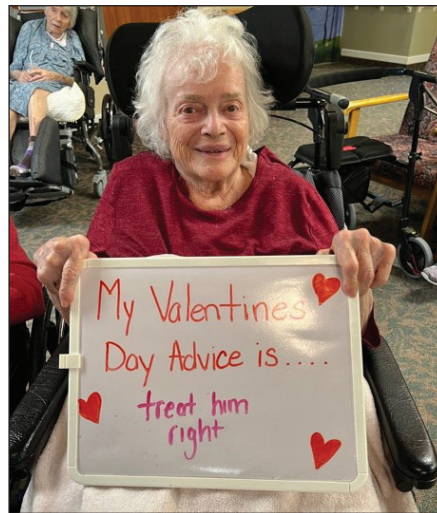 My Valentines
Day Advice is....
treat him
right